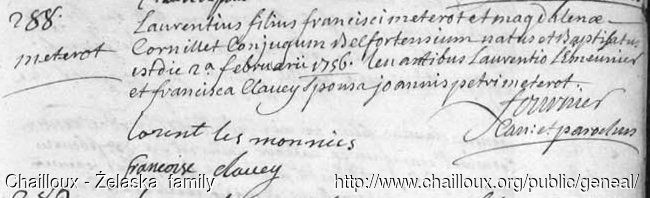 288.
meterot
Laurentius filius francisci meterot et magdalenae
Cornillet Conjugum Belfortensium natus et Baptisatus
est die 2a februarii 1756. levantibus Laurentio
et francisca Clavey sponsa joannis petri meterot.
fournier
Can: et parochus
lorent les monnies
francoise clavey
Chailloux - Żelaska family
http://www.chailloux.org/public/geneal/